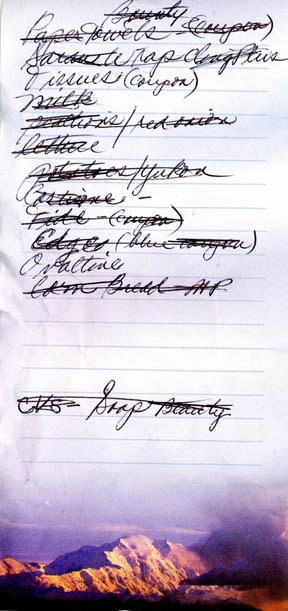 Bounty
Paper Towels - (coupon)
Saran Wrap Cling Plus
Tissues (coupon)
milk
onions/red onion
lettuce
potatoes/yukon
Tide - (coupon)
Edges (blue coupon)
Ovaltine
Corn Bread - AP
CVS - Soap Beauty